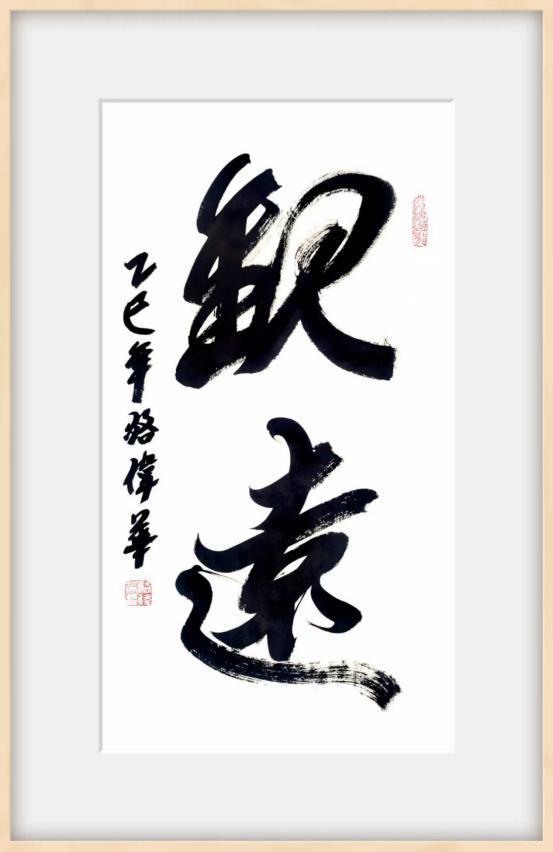 觀遠
乙巳年駱偉華